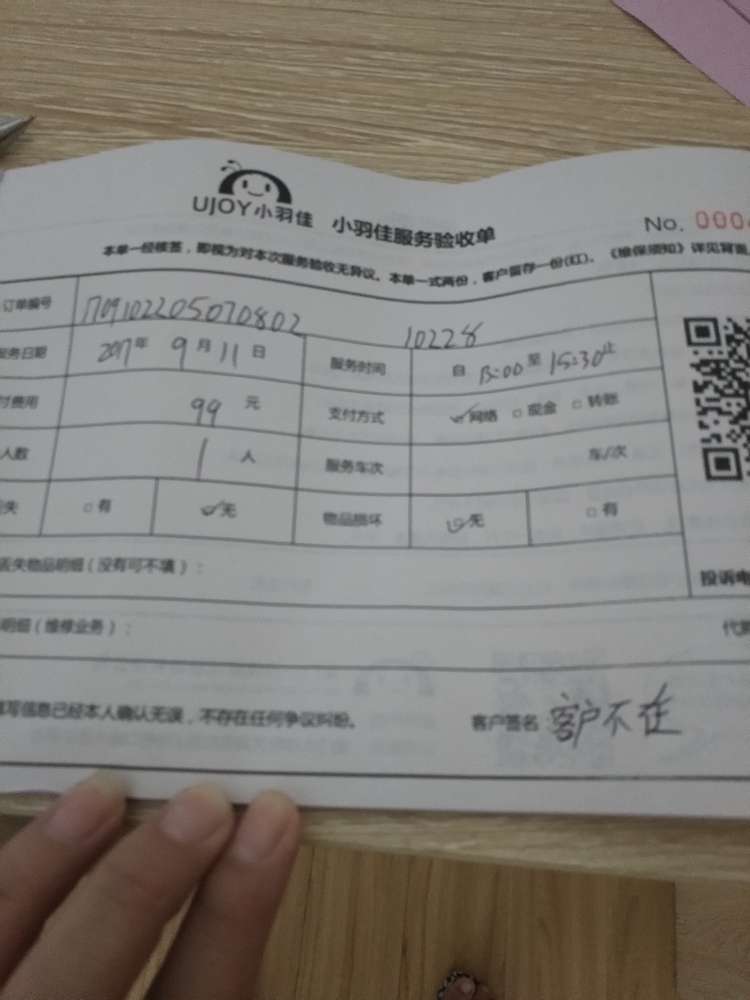 UJOY小羽佳 小羽佳服务验收单
No. 000
本单一经核签，即视为对本次服务验收无异议。本单一式两份，客户留存一份(红)。《维保须知》详见背面
订单编号 1709102205070802 10228
服务日期 2017年 9月11日 服务时间 自 13:00 至 15:30止
付费用 99 元 支付方式 ✓网络 □ 现金 □ 转账
人数 1 人 服务车次 车/次
失 □ 有 ✓无 物品损坏 ✓无 □ 有
丢失物品明细（没有可不填）：
投诉电
明细（维修业务）：
代
写信息已经本人确认无误，不存在任何争议纠纷。 客户签名 客户不在